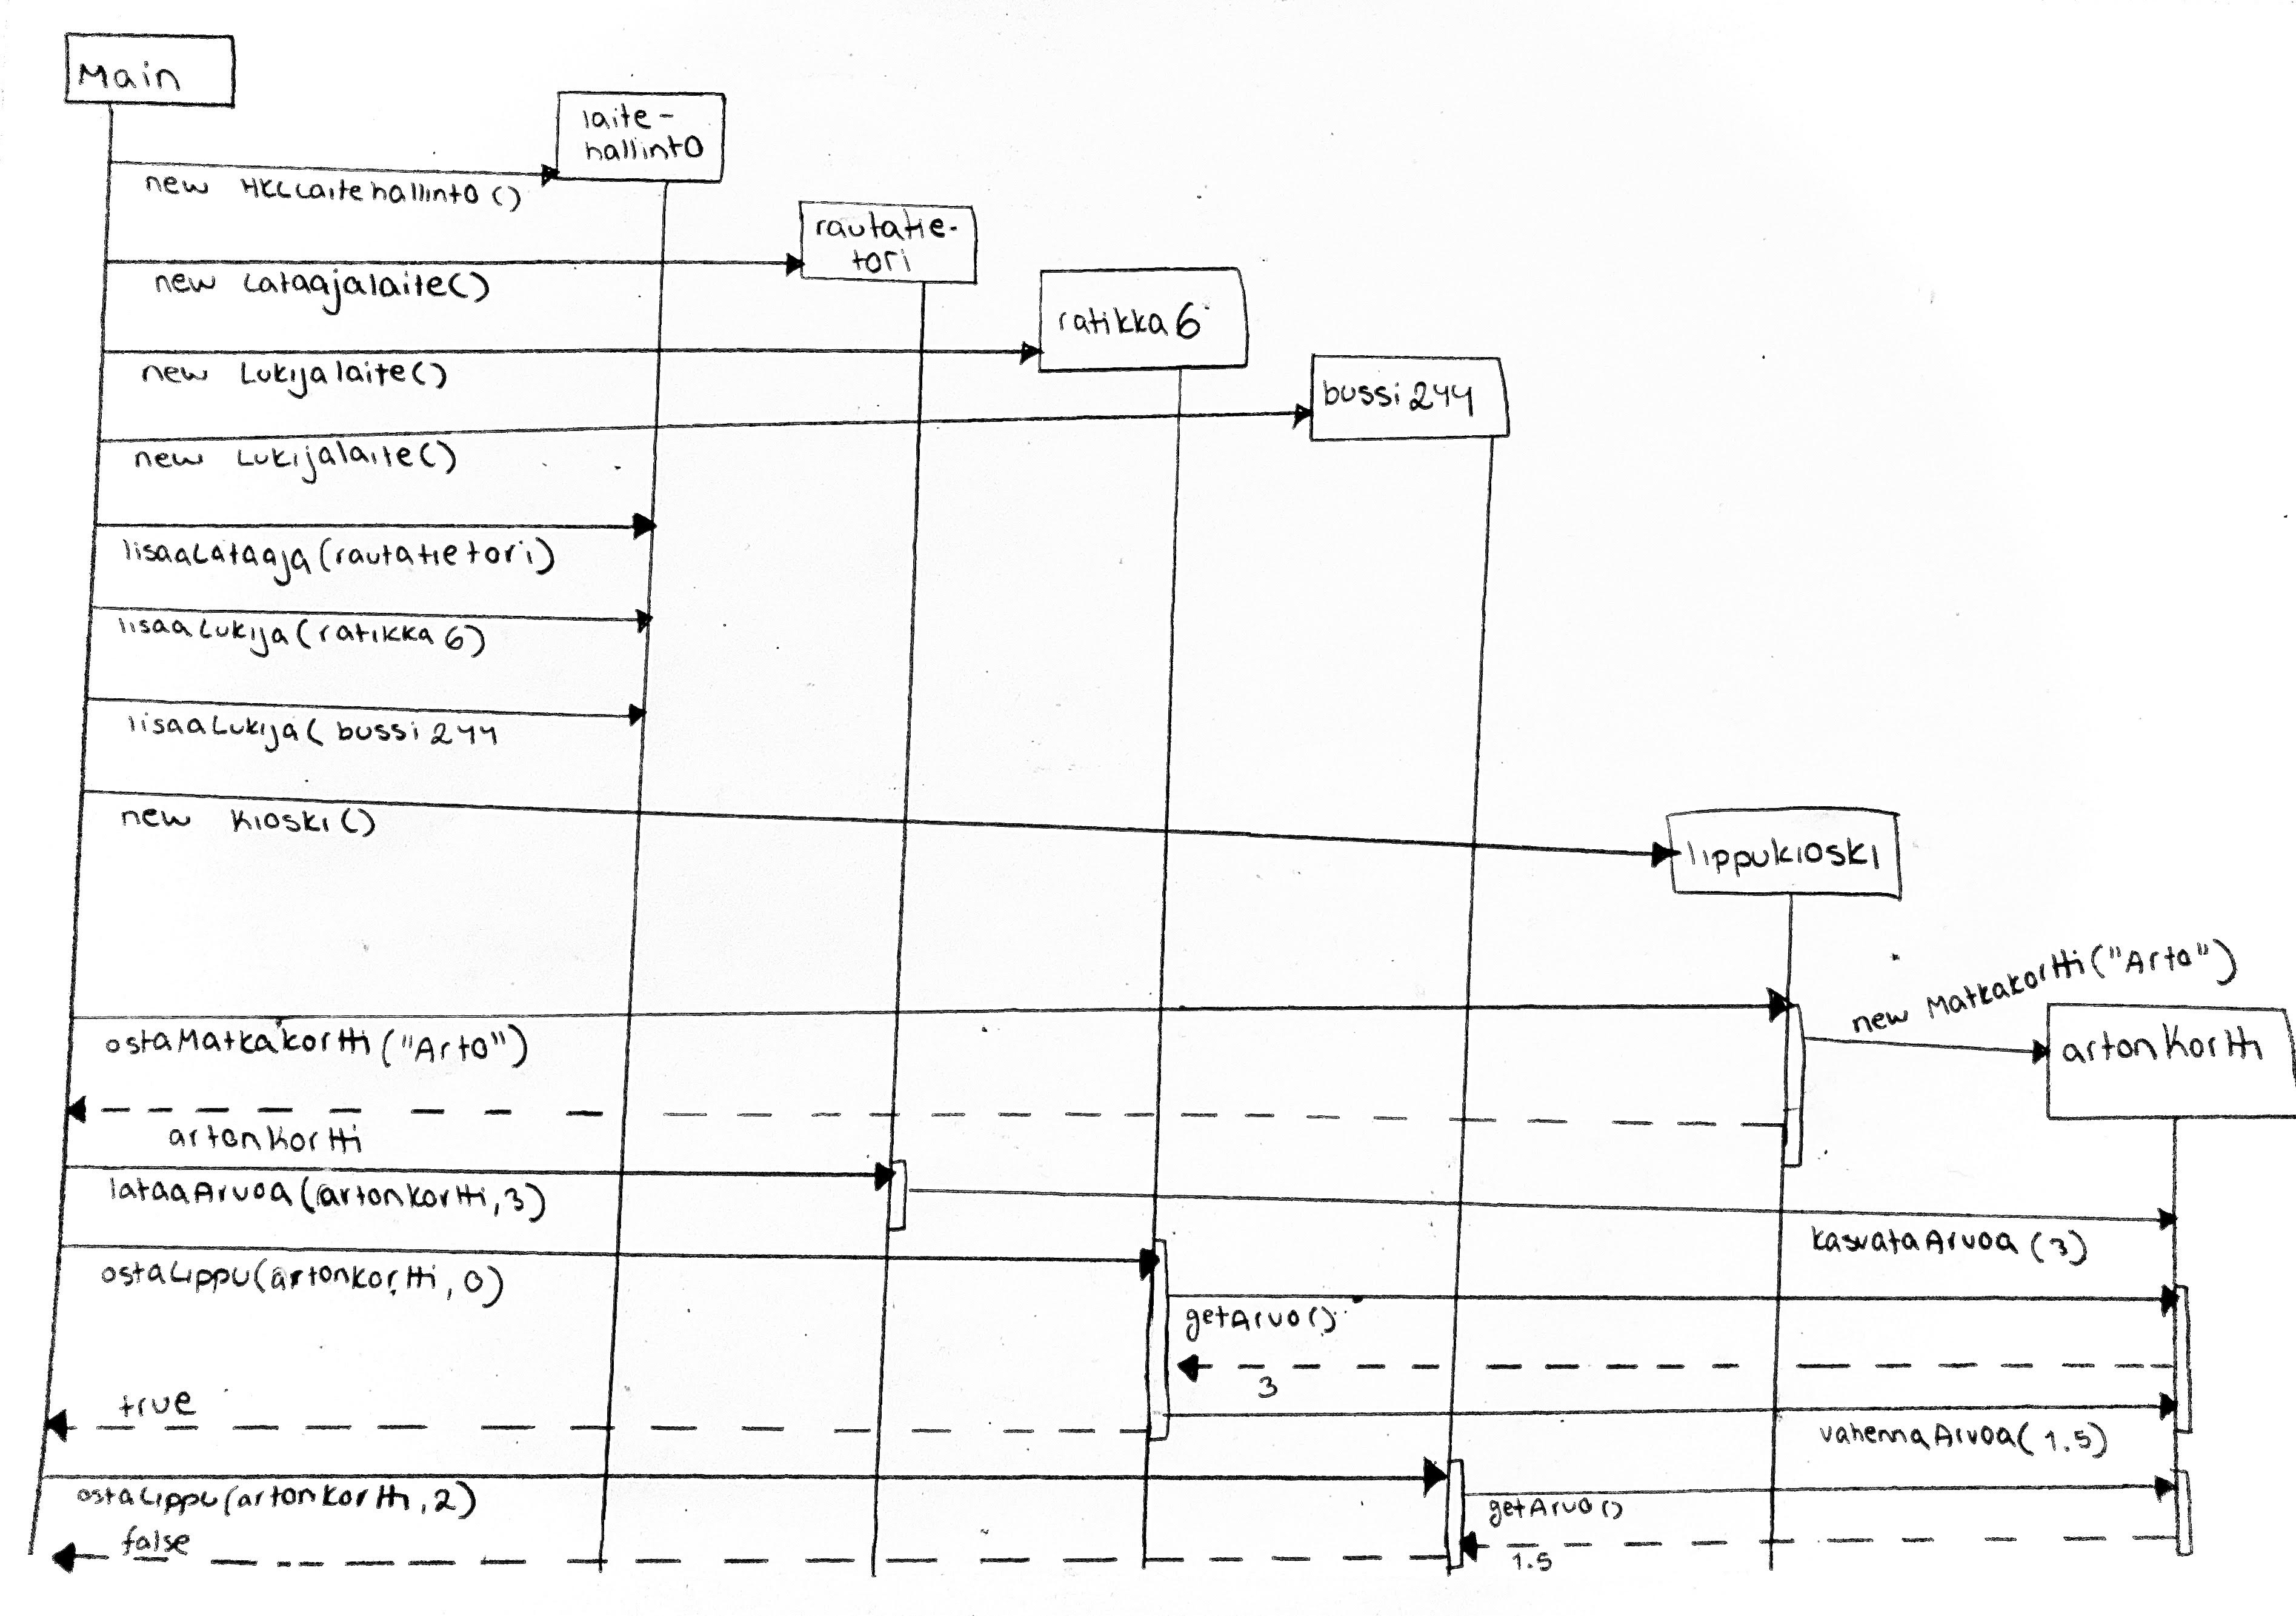 Main
laite-
hallinto
new HKLLaitehallinto()
rautatie-
tori
new Lataajalaite()
ratikka6
new Lukijalaite()
bussi244
new Lukijalaite()
lisaaLataaja(rautatietori)
lisaaLukija(ratikka6)
lisaaLukija(bussi244
new Kioski()
lippukioski
new Matkakortti("Arto")
ostaMatkakortti("Arto")
artonKortti
artonKortti
lataaArvoa(artonkortti,3)
kasvataArvoa(3)
ostaLippu(artonkortti,0)
getArvo()
3
true
vahennaArvoa(1.5)
ostaLippu(artonkortti,2)
getArvo()
false
1.5